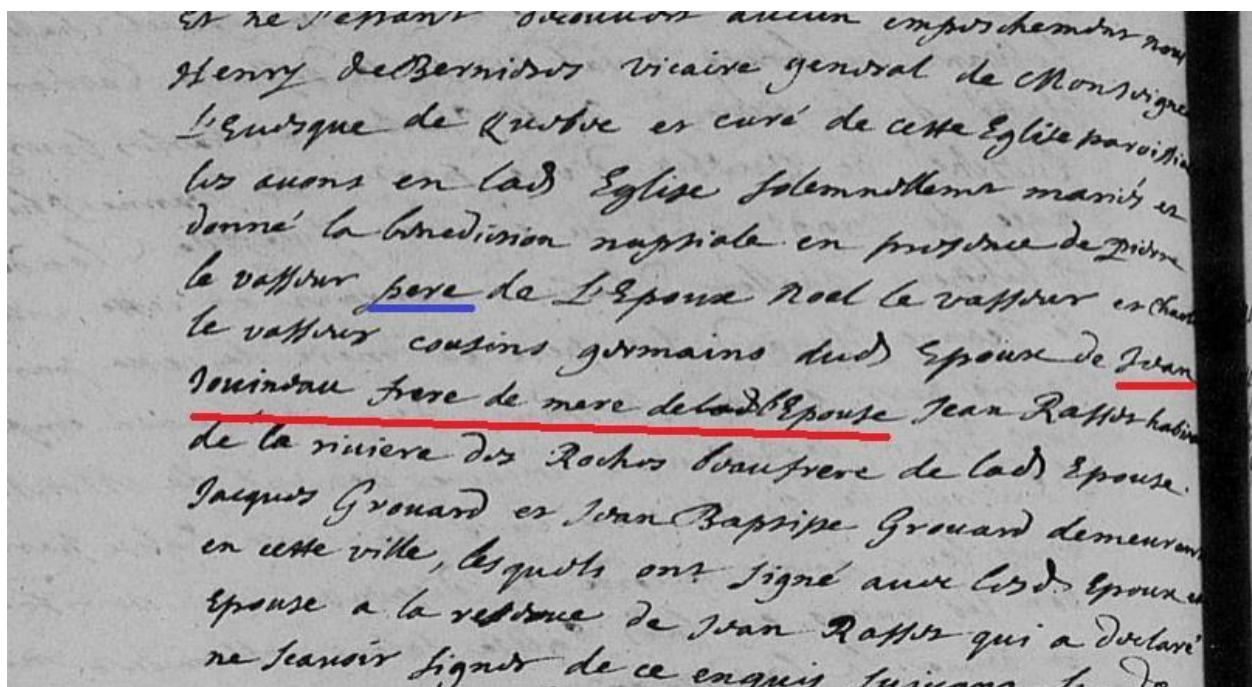 Et ne s'estant découvert aucun empeschement nous
Henry de Bernieres vicaire general de Monseigneur
L'Evesque de Quebec et curé de cette Eglise paroissiale
les avons en lad Eglise solemnellemt mariés et
donné la benediction nuptiale en presence de Pierre
le vasseur pere de L'Epoux Noel le vasseur et Charles
le vasseur cousins germains dud Epoux de Jean
Jouineau frere de mere de lad Epouse Jean Rasset habit
de la riviere des Roches beaufrere de lad Epouse.
Jacques Grouard et Jean Baptiste Grouard demeurant
en cette ville, lesquels ont signé avec lesd Epoux et
Epouse a la reserve de Jean Rasset qui a declaré
ne scavoir signer de ce enquis suivant